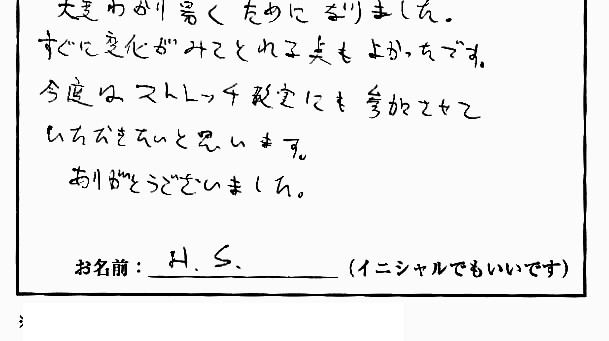 大変わかり易くためになりました。
すぐに変化がみてとれる点もよかったです。
今度はストレッチ教室にも参加させて
いただきたいと思います。
ありがとうございました。
お名前：H. S.（イニシャルでもいいです）